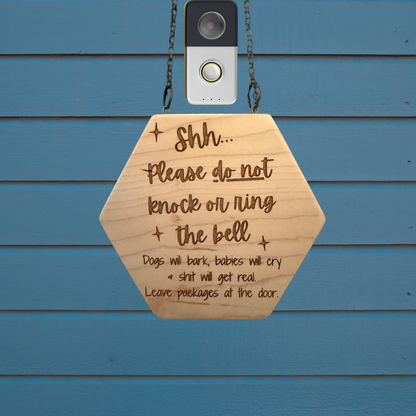 Shh...
Please do not
knock or ring
the bell
Dogs will bark, babies will cry
& shit will get real.
Leave packages at the door.